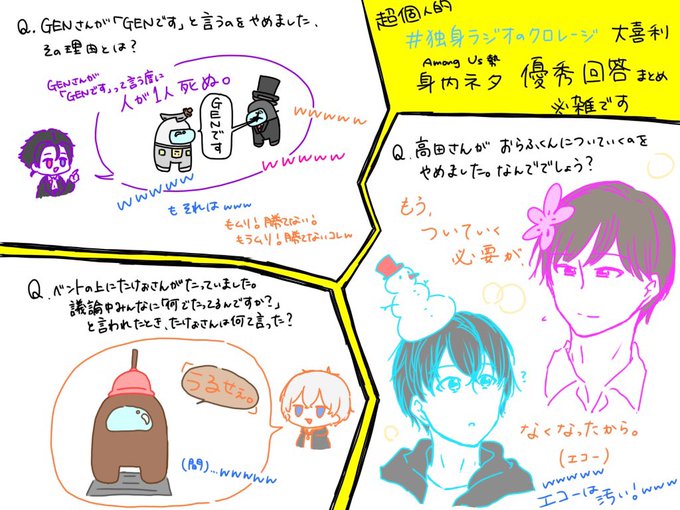 超個人的
#独身ラジオのクロレージ 大喜利
Among Us勢
身内ネタ 優秀回答まとめ
※雑です
Q. GENさんが「GENです」と言うのをやめました、
その理由とは?
GENさんが
「GENです」って言う度に
人が1人死ぬ。
GENです
wwwww
wwwww
wwwww
も それは www
もムリ!勝てない!
もうムリ!勝てないコレw
Q. 高田さんが おらふくんについていくのを
やめました。なんででしょう?
もう、
ついていく
必要が
なくなったから。
(エコー)
wwwww
エコーは汚い!www
Q. ベントの上にたけぉさんがたっていました。
議論中みんなに「何でたってるんですか?」
と言われたとき、たけぉさんは何て言った?
「うるせぇ。」
(間)...wwwww